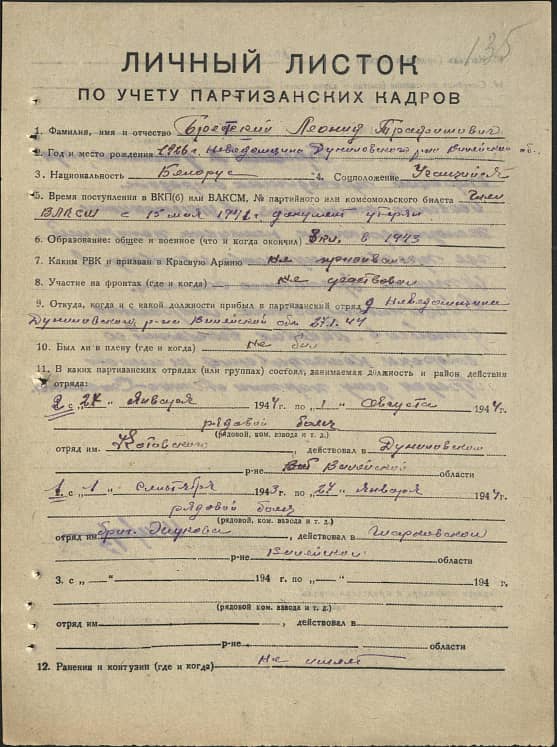 135
ЛИЧНЫЙ ЛИСТОК
ПО УЧЕТУ ПАРТИЗАНСКИХ КАДРОВ
1. Фамилия, имя и отчество Леонид
2. Год и место рождения 1926 г. Дуниловского р-на Вилейской об.
3. Национальность Белорус 4. Соцположение Учащийся
5. Время поступления в ВКП(б) или ВЛКСМ, № партийного или комсомольского билета Член
ВЛКСМ с 15 мая документ утерян
6. Образование: общее и военное (что и когда окончил) 8 кл. в 1943
7. Каким РВК и призван в Красную Армию не призывался
8. Участие на фронтах (где и когда) Не участвовал
9. Откуда, когда и с какой должности прибыл в партизанский отряд д.
Дуниловского, р-на Вилейской обл. 27.1.44
10. Был ли в плену (где и когда) не был
11. В каких партизанских отрядах (или группах) состоял, занимаемая должность и район действия
отряда:
2 с „27 " Января 1944 г. по „1 " Августа 1944 г.
рядовой боец
(рядовой, ком. взвода и т. д.)
отряд им. Котовского, действовал в Дуниловском
р-не Вилейской области
1. с „1 " Сентября 1943 г. по „27 " Января 1944 г.
рядовой боец
(рядовой, ком. взвода и т. д.)
отряд им. , действовал в Шарковской
р-не Вилейской области
3. с „—" 194 г. по „—" 194 г.
(рядовой, ком. взвода и т. д.)
отряд им. , действовал в
р-не области
12. Ранения и контузии (где и когда) Не имеет